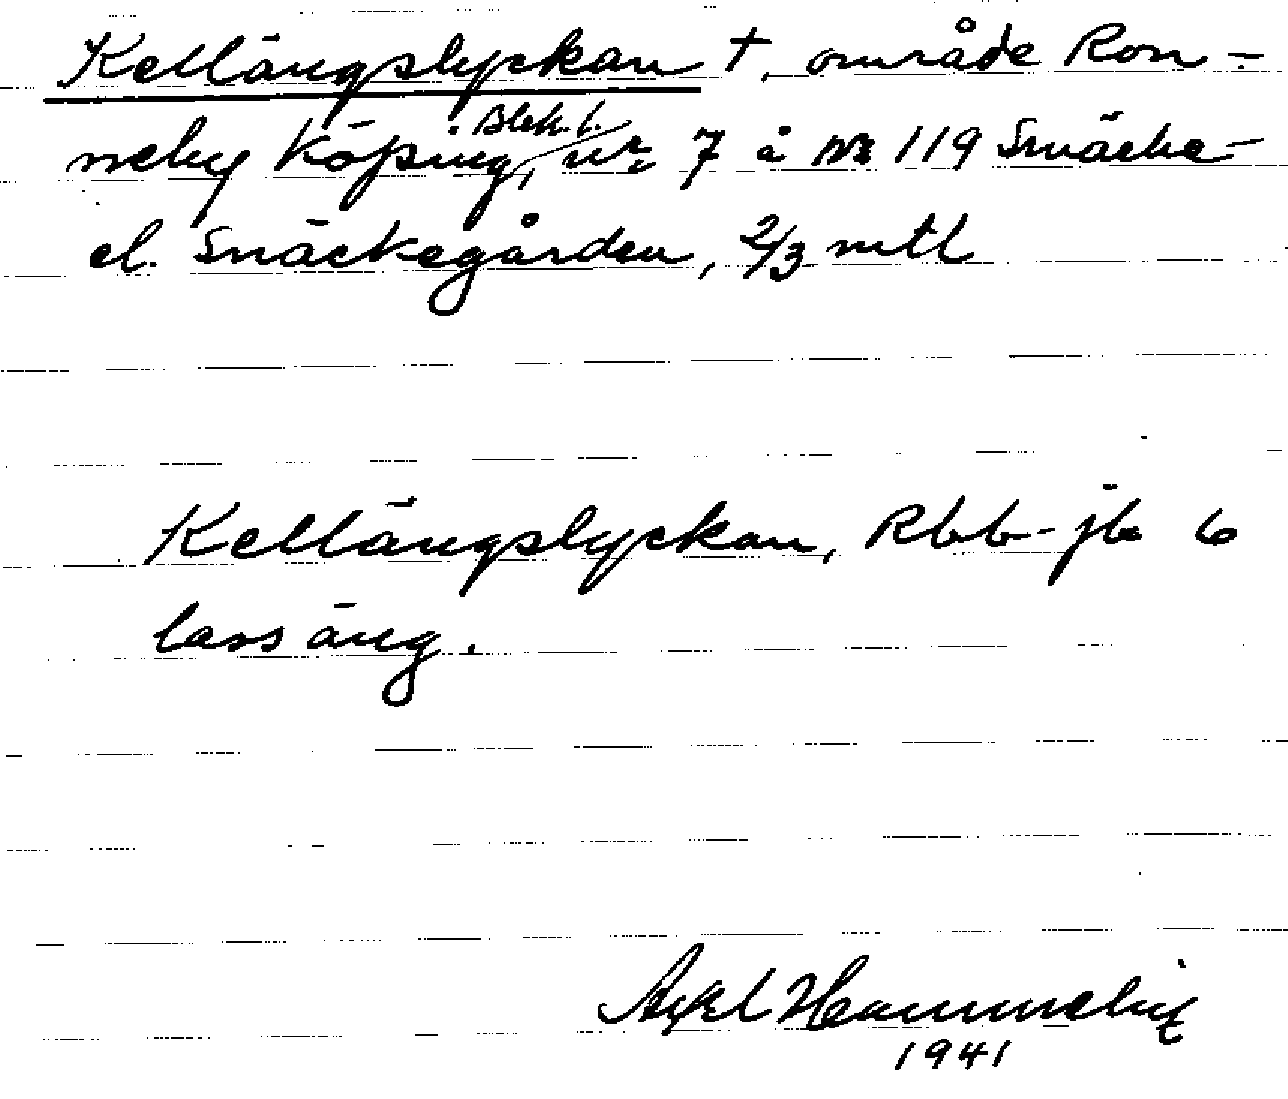 Kellängslyckan †, område Ron-
neby Köping, Blek. l. nr 7 å nr 119 Snäcke-
el. Snäckegården, 2/3 mtl
Kellängslyckan, Rbb-jb 6
lass äng.
Axel
1941